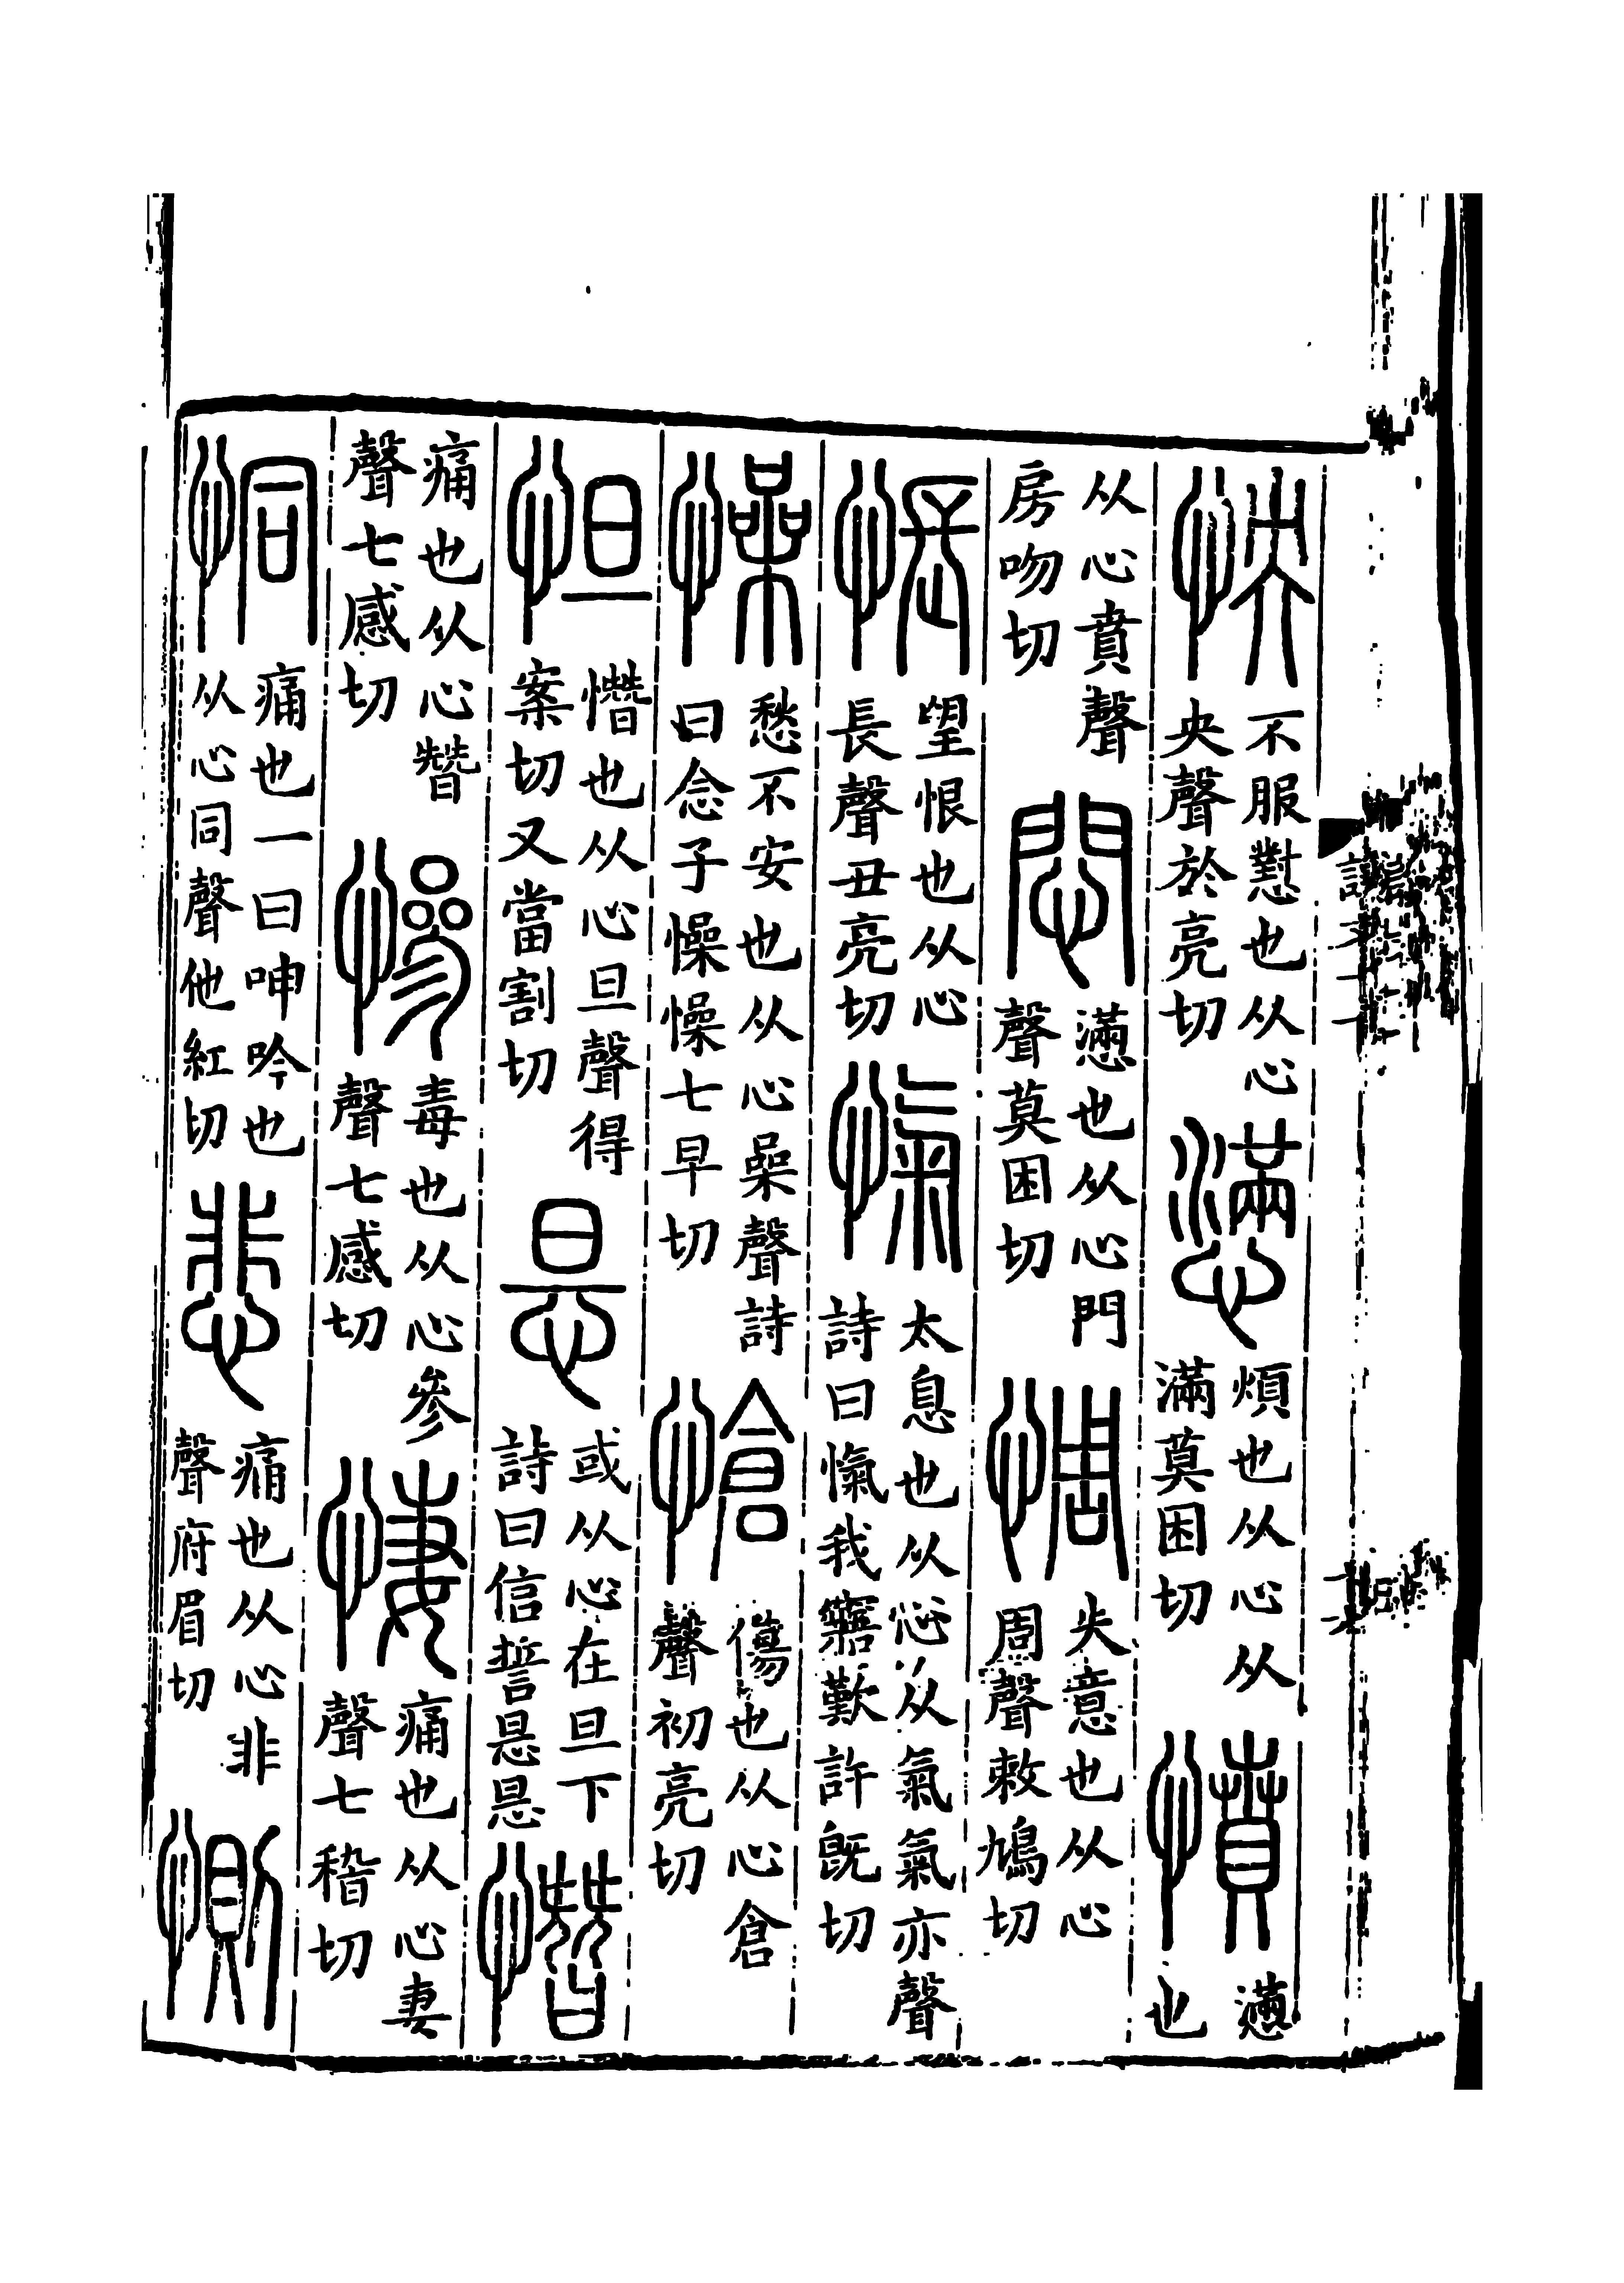 怏 不服懟也从心央聲於亮切 懣 煩也从心从滿莫困切 憤 懣也
从心賁聲房吻切 悶 懣也从心門聲莫困切 惆 失意也从心周聲敕鳩切
悵 望恨也从心長聲丑亮切 愾 太息也从心从氣氣亦聲詩曰愾我寤歎許旣切
懆 愁不安也从心喿聲詩曰念子懆懆七早切 愴 傷也从心倉聲初亮切
怛 憯也从心旦聲得案切又當割切 悬 或从心在旦下詩曰信誓悬悬 憯
痛也从心朁聲七感切 慘 毒也从心參聲七感切 悽 痛也从心妻聲七稽切
恫 痛也一曰呻吟也从心同聲他紅切 悲 痛也从心非聲府眉切 惻